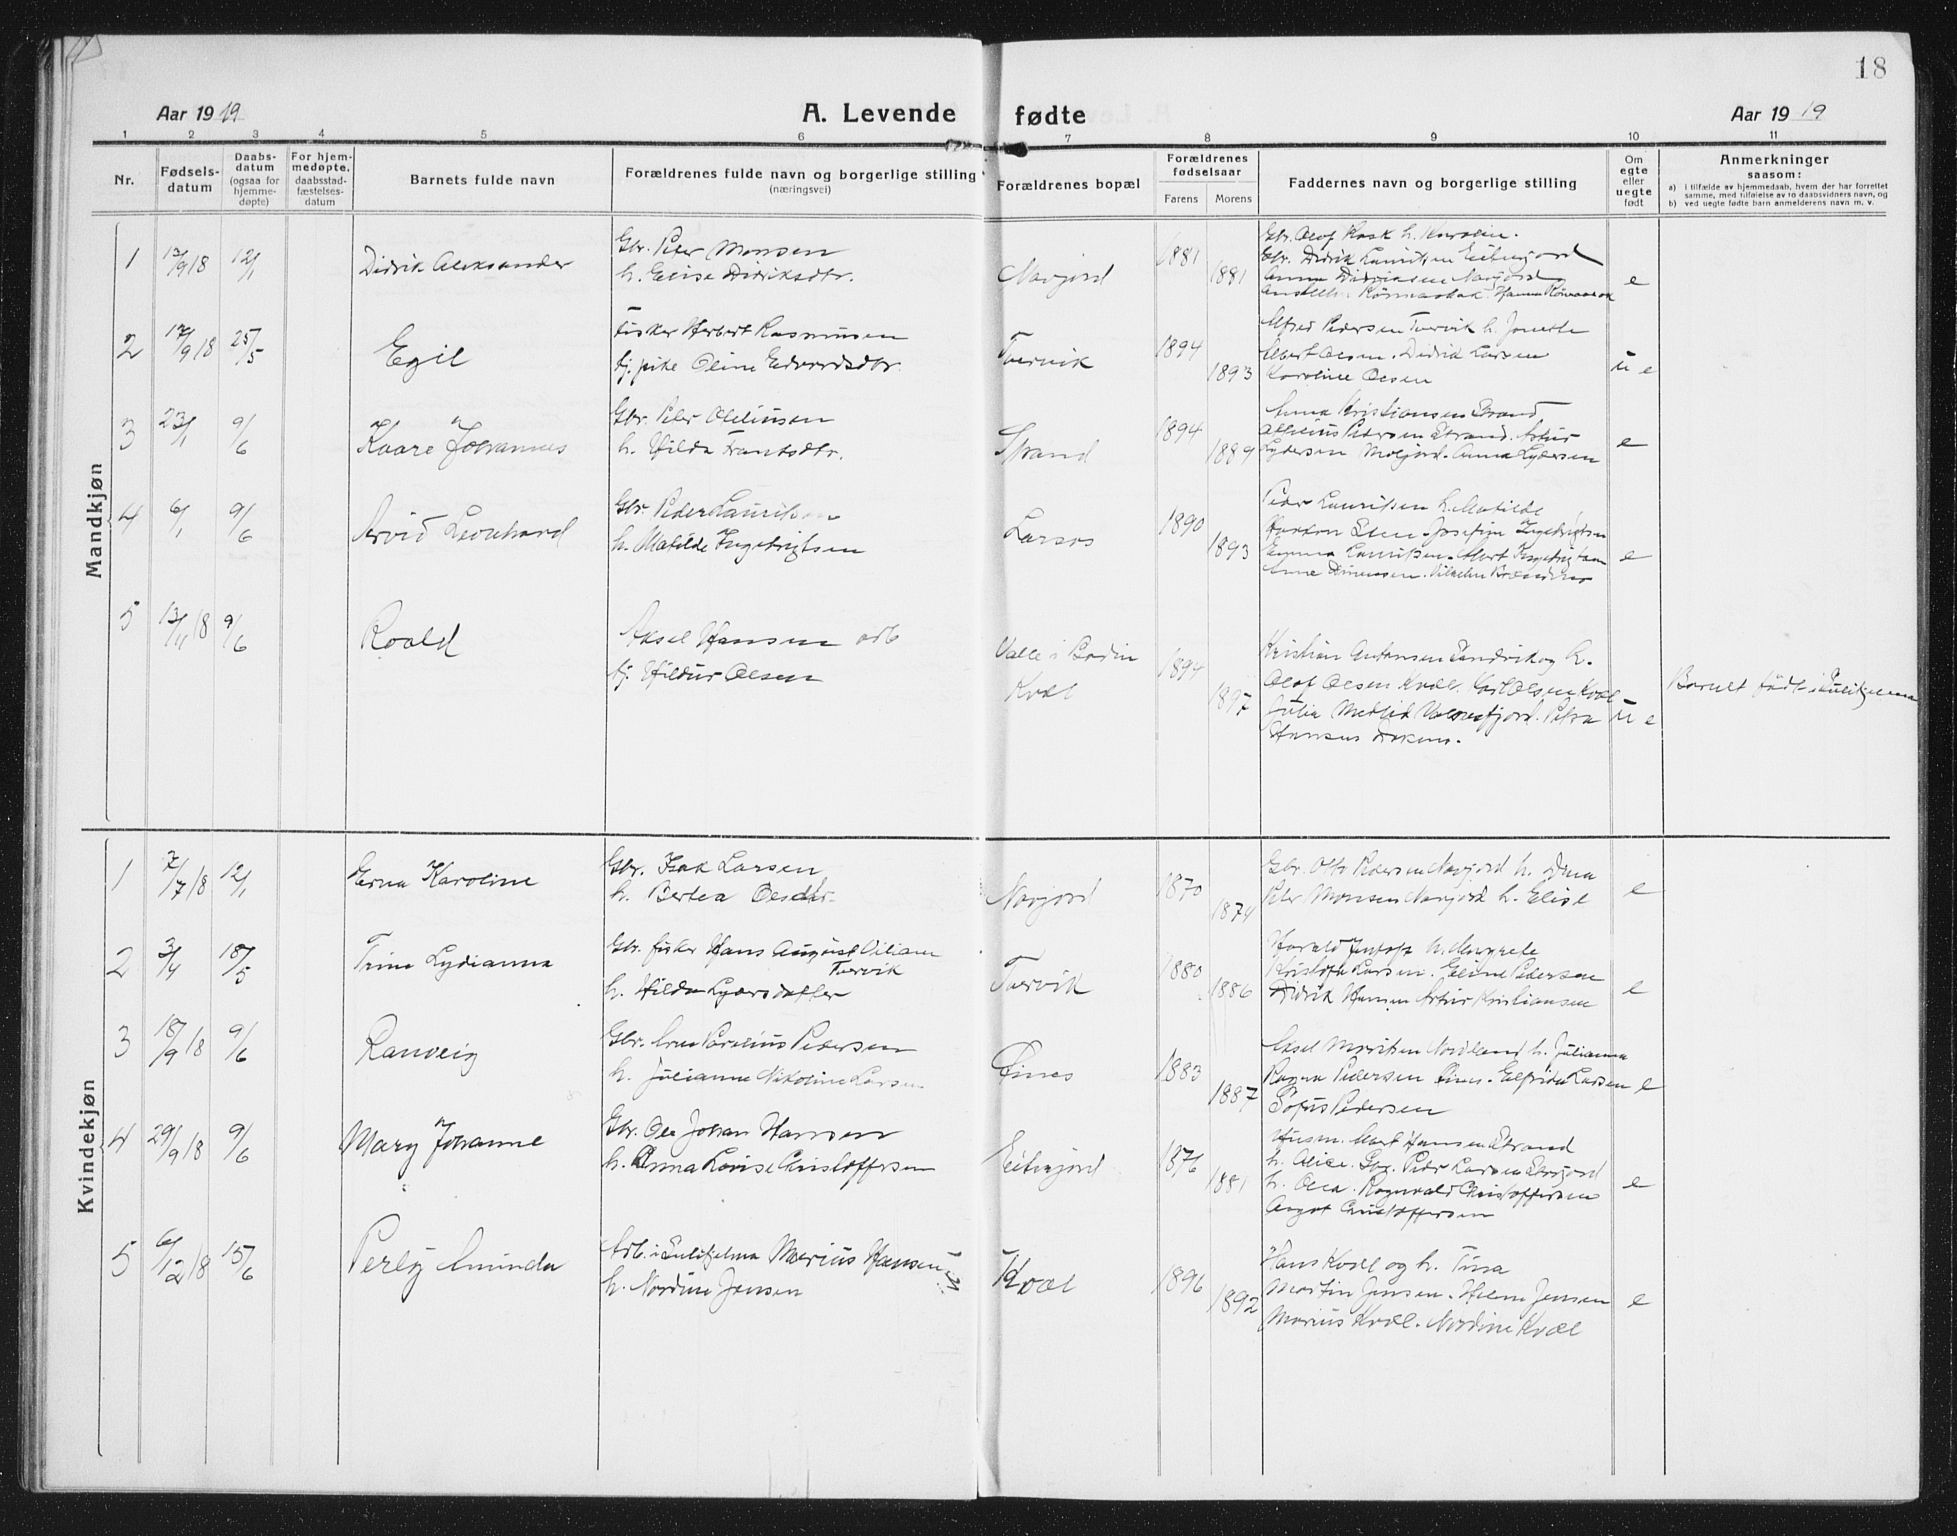 18
Aar 1919
A. Levende fødte
Aar 1919
1 2 3 4 5 6 7 8 9 10 11
Nr.
Fødsels-
datum
Daabs-
datum
(ogsaa for
hjemme-
døpte)
For hjem-
medøpte,
daabsstad-
fæstelses-
datum
Barnets fulde navn
Forældrenes fulde navn og borgerlige stilling
(næringsvei)
Forældrenes bopæl
Forældrenes
fødselsaar
Farens Morens
Faddernes navn og borgerlige stilling
Om
egte
eller
uegte
født
Anmerkninger
saasom:
a) i tilfælde av hjemmedaab, hvem der har forrettet
samme, med tilføielse av to daabsvidners navn, og
b) ved uegte fødte barn anmelderens navn m. v.
Mandkjøn
1 13/9 18 12/1 Didrik Aleksander
Gbr. Peter Monsen
h. Elise Didriksdtr.
Navjord 1881 1881
Gbr. Olof h.
Gbr. Didrik Lauritsen
Anna Didriksen Navjord
e
2 17/9 18 25/5 Egil
Fisker Herbert Rasmusen
tj. pike Oline Edvardsdtr.
Tuervik 1894 1893
Alfred Pedersen Tuervik h.
Albert Olsen. Didrik Larsen
Karoline Olsen
u e
3 23/1 9/6 Kaare Johannes
Gbr. Peter Otelinsen
h. Hilda Frantsdtr.
Strand 1894 1889
Anna Kristiansen Strand
Pedersen Strand. Artur
Lydersen. Anna Lydersen
e
4 6/1 9/6 Arvid Leonhard
Gbr. Peder Lauritsen
h. Matilde Ingebrigtsen
Larsos 1890 1893
Peder Lauritsen h. Matilde
Josefine Ingebrigtsen
Emma Lauritsen. Albert Ingebrigtsen
Vilhelm
e
5 13/11 18 9/6 Roald
Aksel Hansen arb
tj. Hildur Olsen
Valle i Bodin
Kvæl
1894 1897
Kristian Antonsen Sandvik og h.
Olaf Olsen Kvæl. Karl Olsen Kvæl
Julia Valnesfjord. Petra
Hansen
u e
Barnet født i Sulitjelma
Kvindekjøn
1 7/7 18 12/1 Erna Karoline
Gbr. Isak Larsen
h. Bertea Olsdtr.
Navjord 1870 1874
Gbr. Otto Pedersen Navjord h. Dina
Peter Monsen Navjord h. Elise
e
2 3/4 18/5 Trine Lydianna
Gbr. fisker Hans August Viliam
Tuervik
h. Hilda Lydersdatter
Tuervik 1880 1886
Harald h. Margrete
Kristofer Larsen. Eline Pedersen
Didrik Hansen Artur Kristiansen
e
3 18/9 18 9/6 Ranveig
Gbr. Arne Parelius Pedersen
h. Julianne Nikoline Larsen
Fines 1883 1887
Aksel Moritsen Nordland h. Julianna
Ragna Pedersen Fines. Elfrida Larsen
Sofus Pedersen
e
4 29/9 18 9/6 Mary Johanne
Gbr. Ole Johan Hansen
h. Anna Lovise Christoffersen
Eitenjord 1876 1881
Husm. Albert Hansen Strand
h. Alice. Gbr. Peder Larsen
h. Olea. Ragnvald Christoffersen
Christoffersen
e
5 6/12 18 15/6 Perly Aminda
Arb. i Sulitjelma Marius Hansen
h. Nordine Jensen
Kvæl 1896 1892
Hans Kvæl og h. Tina
Martin Jensen. Helene Jensen
Marius Kvæl. Nordine Kvæl
e